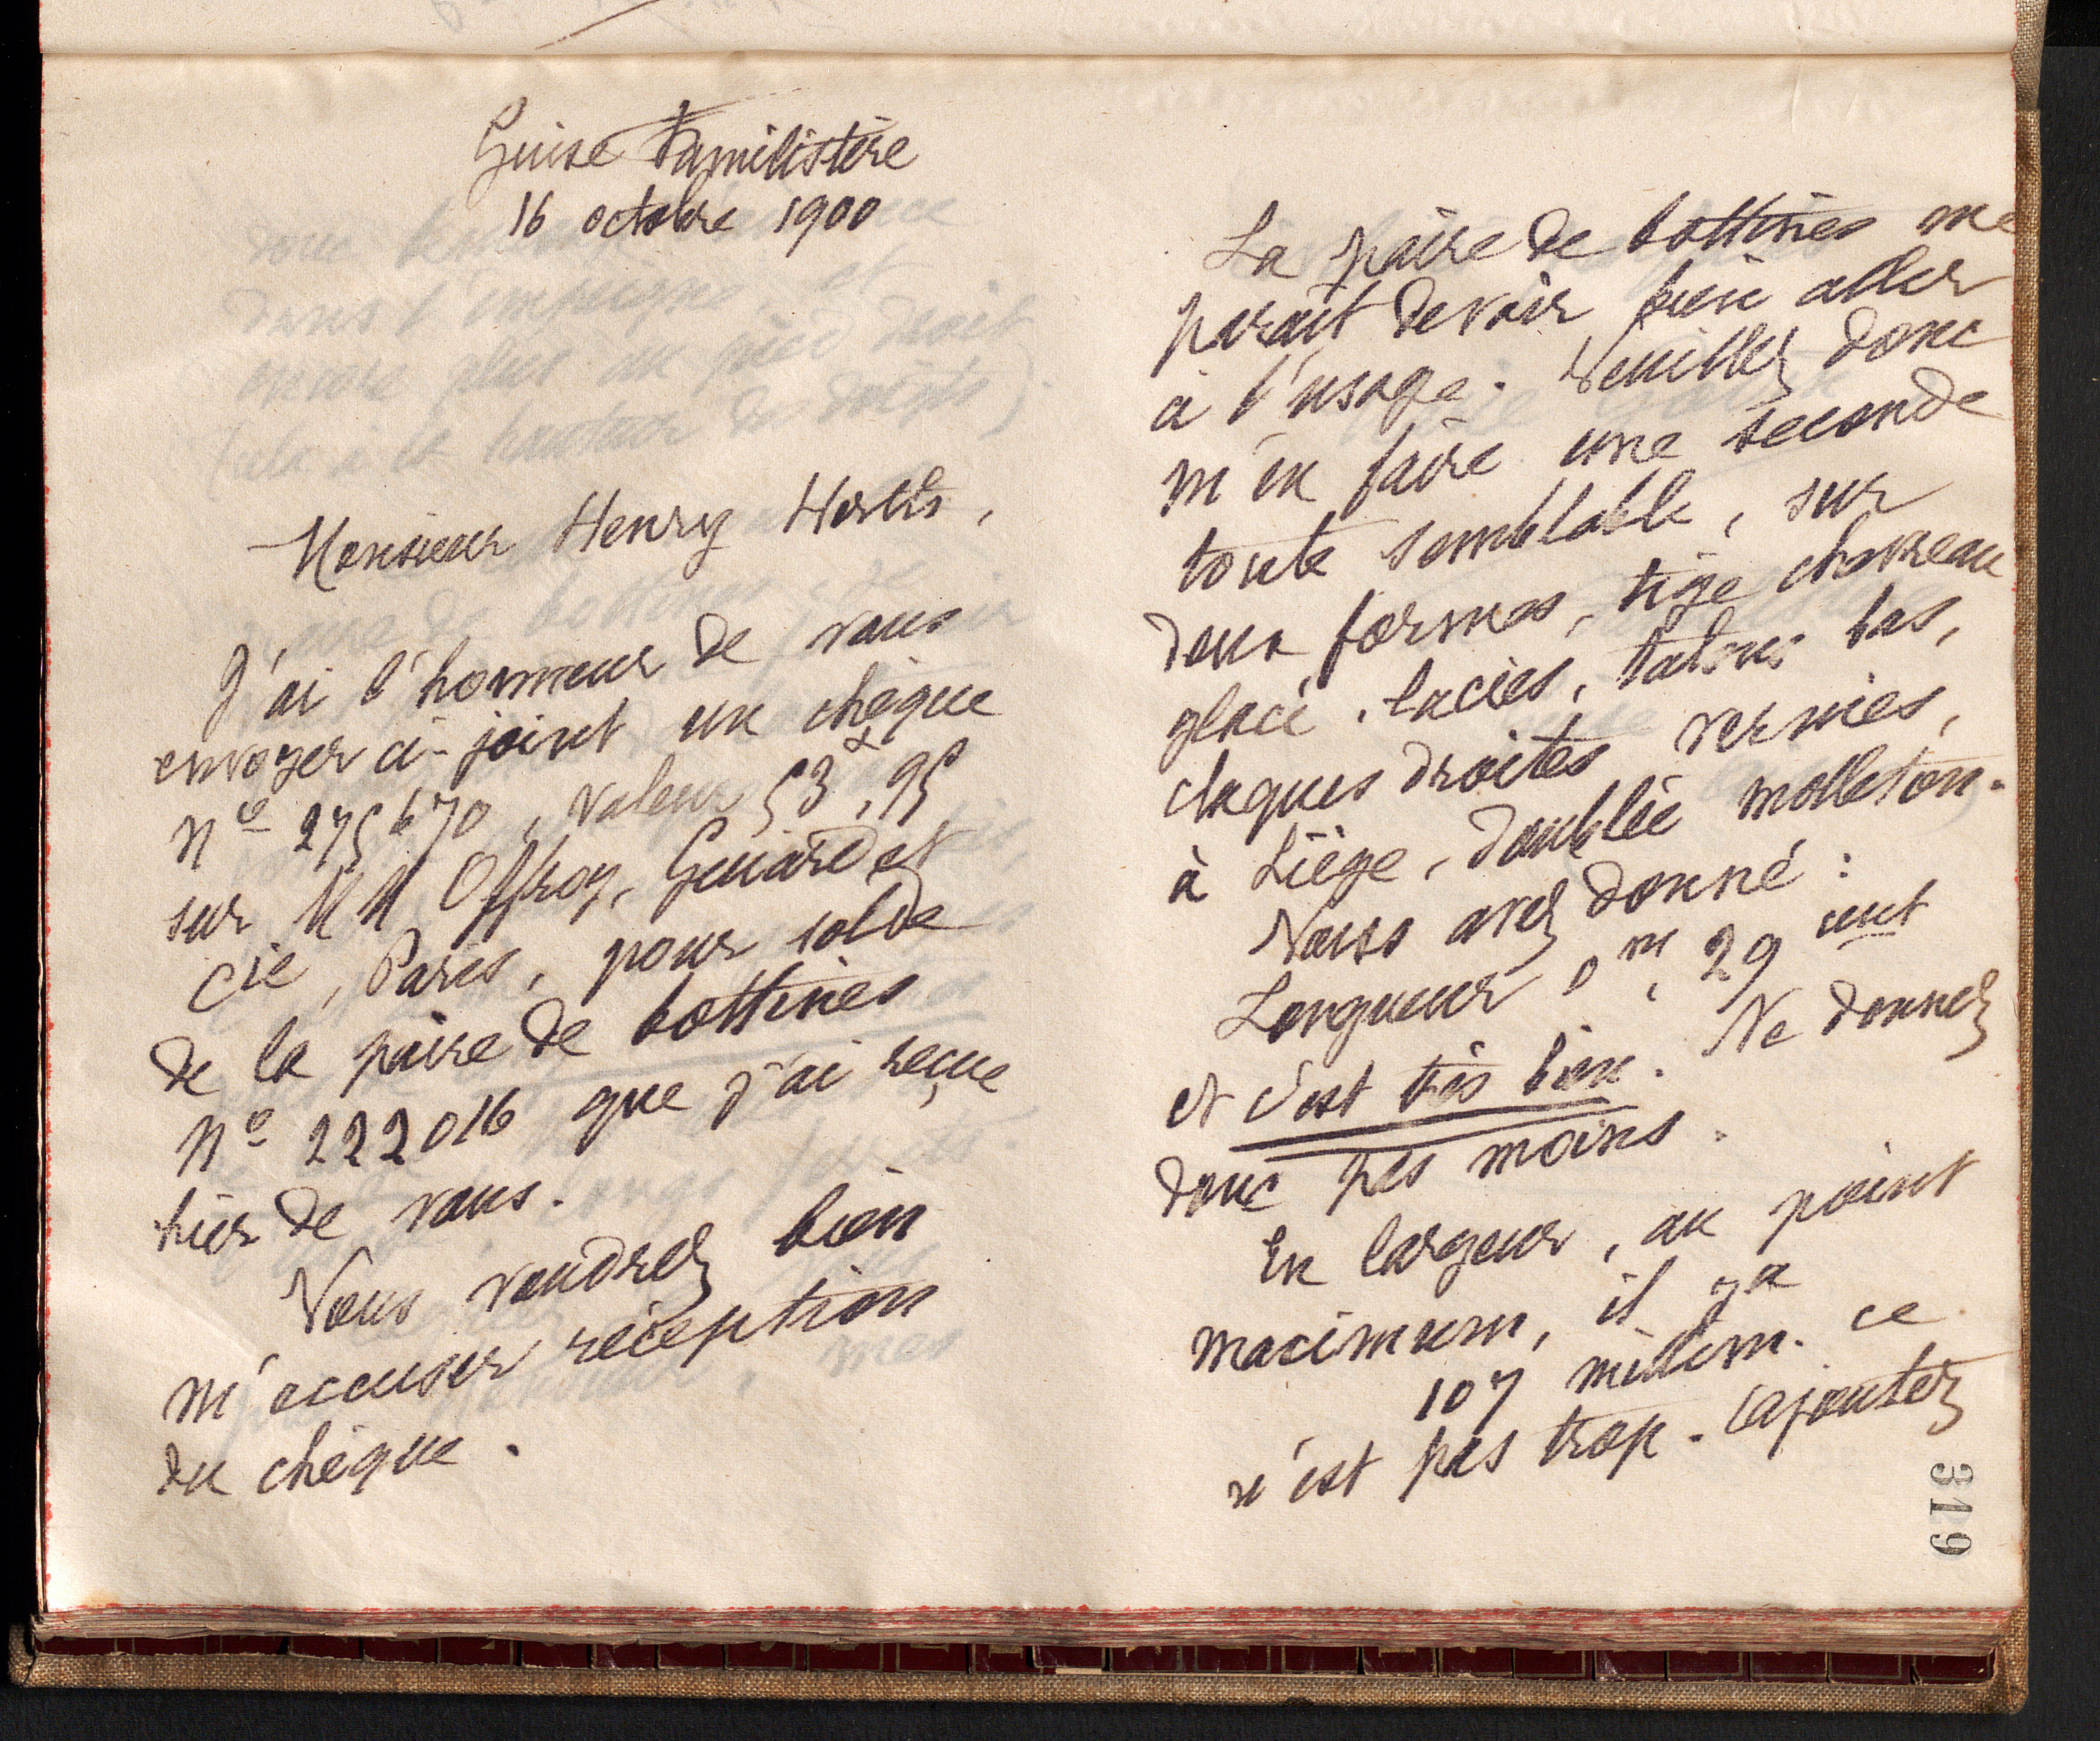 Guise Familistère
16 octobre 1900
Monsieur Henry
J'ai l'honneur de vous
envoyer ci-joint un chèque
Nº 275670, valeur 53f,95
sur MM Offroy, Guiard et
Cie, Paris, pour solde
de la paire de bottines
Nº 222016 que j'ai reçue
hier de vous.
Vous voudrez bien
m'accuser réception
du chèque.
La paire de bottines me
parait devoir bien aller
à l'usage. Veuillez donc
m'en faire une seconde
toute semblable, sur
deux formes, tige chevreau
glacé, lacées, talons bas,
claques droites vernies,
à Liège, doublée molleton.
Vous avez donné :
Longueur 0m,29 cent
et c'est très bien. Ne donnez
donc pas moins.
En largeur, au point
maximum, il y a
107 millim. ce
n'est pas trop. Ajoutez
319